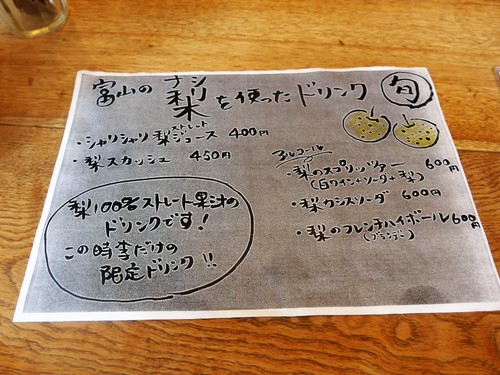 富山の梨を使ったドリンク 旬
ナシ
ストレート
・シャリシャリ梨ジュース 400円
・梨スカッシュ 450円
アルコール
・梨のスプリッツァー 600円
(白ワイン+ソーダ+梨)
・梨カシスソーダ 600円
・梨のフレンチハイボール 600円
(ブランデー)
梨100%ストレート果汁の
ドリンクです!
この時季だけの
限定ドリンク!!